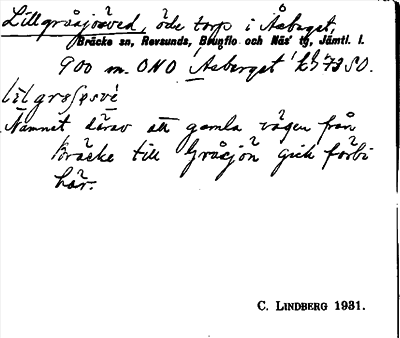 Lillgråsjösved, öde torp i Åsberget,
Bräcke sn, Revsunds, Brunflo och Näs' tg, Jämtl. l.
900 m. ONO Åsberget 73 SO.
Namnet därav att gamla vägen från
Bräcke till Gråsjön gick förbi
här.
C. LINDBERG 1931.